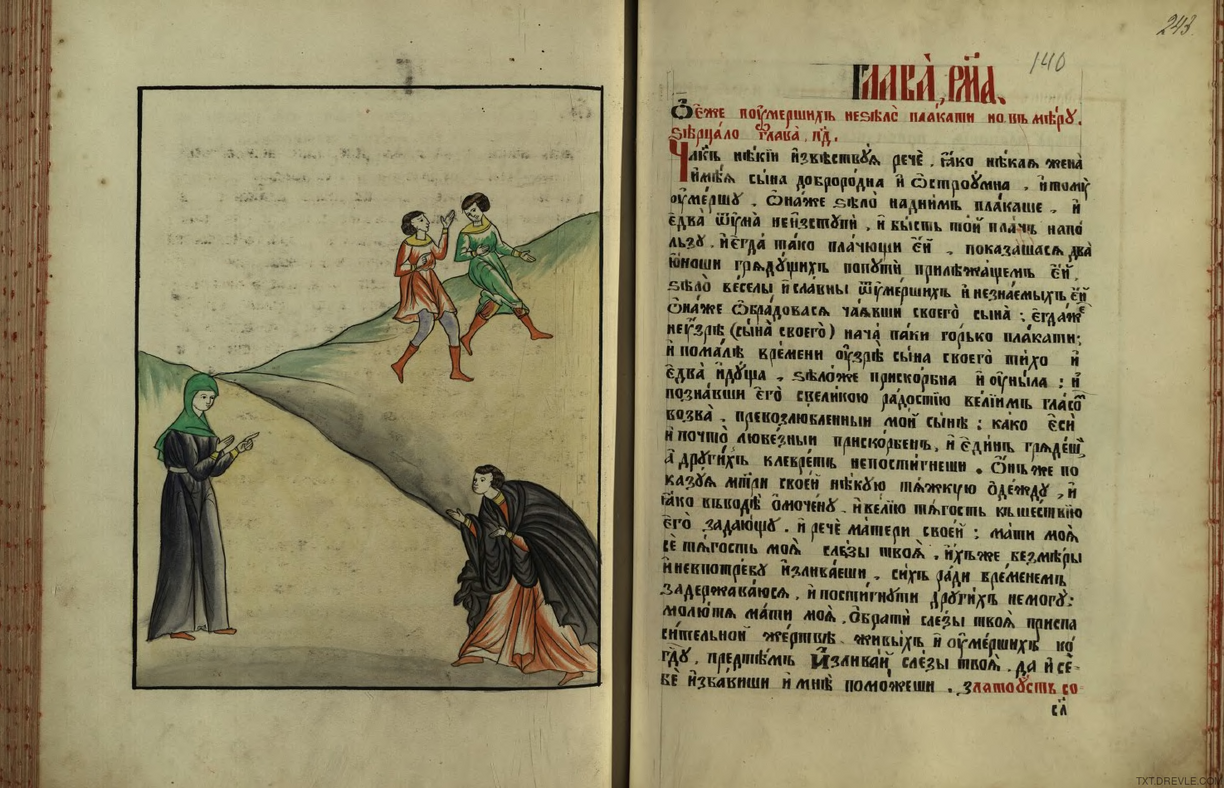 243
140
Глава̀, рм҃а.
Ѽе́же поᲂу҆ме́ршихъ незѣлѡ̀ пла́кати но въ мѣ́рꙋ.
зѣрца́ло глава̀, п҃д.
Чл҃къ нѣ́кїй и҆звѣ́ствꙋѧ речѐ. ꙗ҆́ко нѣ́каѧ жена̀
и҆мѣ́ѧ сы́на доброро́дна и҆ ѻ҆строꙋ́мна. и҆ томꙋ̀
ᲂу҆ме́ршꙋ. ѻ҆на́же зѣлѡ̀ надни́мъ пла́каше. и҆
є҆два̀ ѿᲂу҆ма̀ неи҆зстꙋпѝ, и҆ бы́сть то́й пла́чь напо́
льзꙋ. и҆ є҆гда̀ та́ко пла́чющи є҆́й. показа́шасѧ два̀
ю҆́ноши грѧдꙋ́щихъ попꙋтѝ прилѣжа́щемъ є҆́й.
зѣлѡ̀ ве́селы и҆ сла́вны ѿᲂу҆ме́ршихъ и҆ незна́емыхъ є҆́й
ѻ҆на́же ѡ҆бра́довасѧ ча́ѧвши своегѡ̀ сы́на: є҆гда́же
неᲂу҆зрѣ̀ (сы́на своегѡ̀) нача̀ па́ки го́рько пла́кати:
и҆ пома́лѣ вре́мени ᲂу҆зрѣ̀ сы́на своегѡ̀ ти́хо и҆
є҆два̀ и҆дꙋ́ща. зѣло́же приско́рбна и҆ ᲂу҆ны́ла: и҆
позна́вши є҆гѡ̀ свели́кою ра́достїю ве́лїимъ гла́сом
возва̀. превозлю́бленныи мо́й сы́нѣ: ка́ко є҆сѝ
и҆ почто̀ любе́зныи приско́рбенъ, и҆ є҆ди́нъ грѧде́ши,
а҆ дрꙋги́хъ клевре́тъ непости́гнеши. ѻ҆́нъ же по
казꙋ́ѧ мт҃ри свое́й нѣ́кꙋю тѧ́жкꙋю ѻ҆де́ждꙋ, и҆
ꙗ҆́ко въводѣ̀ ѡ҆мо́ченꙋ. и҆ ве́лїю тѧ́гость къ ше́ствїю
є҆гѡ̀ задаю́щꙋ. и҆ речѐ ма́тери свое́й: ма́ти моѧ̀
сѐ тѧ́гость моѧ̀ сле́зы твоѧ̀. и҆́хъже безмѣ́ры
и҆ невпотре́бꙋ и҆злива́еши. си́хъ ра́ди вре́менемъ
заде́ржаваюсѧ. и҆ пости́гнꙋти дрꙋги́хъ немогꙋ̀:
молю́тѧ ма́ти моѧ̀, ѡ҆братѝ сле́зы твоѧ̀ приспа
си́тельной же́ртвѣ живы́хъ и҆ ᲂу҆ме́ршихъ ко
гдⷭ҇ꙋ, предтѣ́мъ и҆злива́й сле́зы твоѧ̀. да и҆ се́-
бе и҆зба́виши и҆ мнѣ̀ помо́жеши. златоᲂу́стъ со
сл
TXT.DREVLE.COM